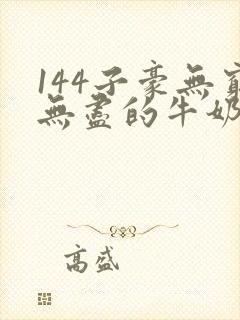 144子豪無窮
無盡的牛奶
高盛